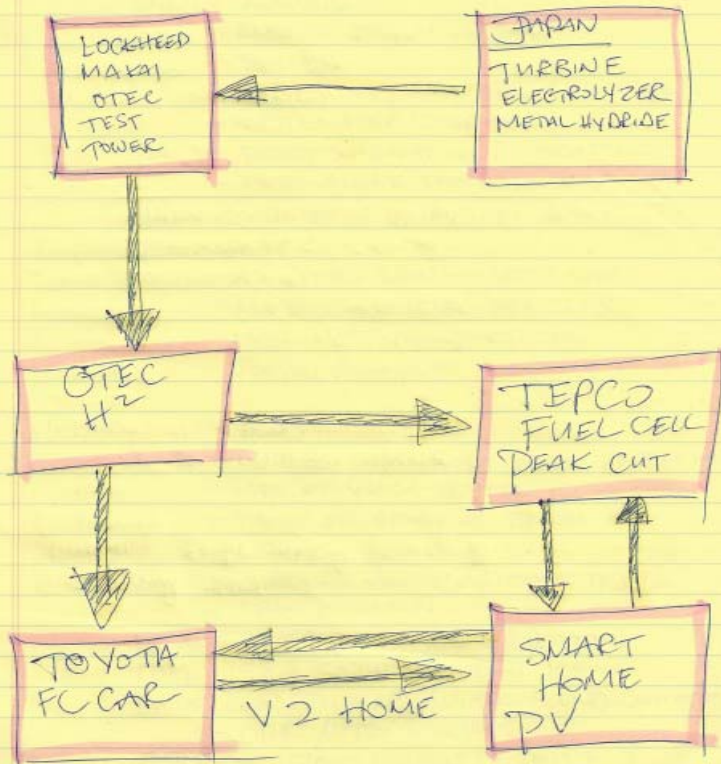 LOCKHEED
MAKAI
OTEC
TEST
TOWER
JAPAN
TURBINE
ELECTROLYZER
METAL HYDRIDE
OTEC
H2
TEPCO
FUEL CELL
PEAK CUT
TOYOTA
FC CAR
V 2 HOME
SMART
HOME
PV